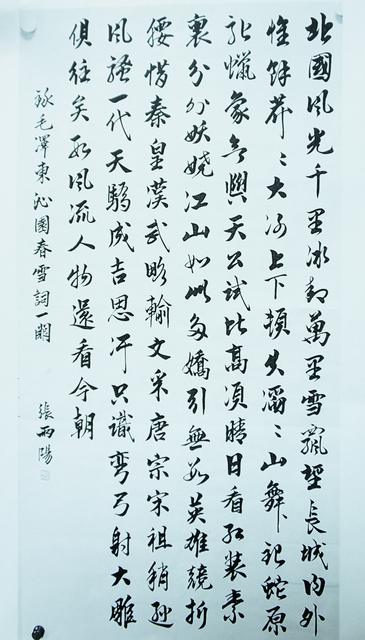 北國風光千里冰封萬里雪飄望長城内外
惟餘莽〻大河上下頓失滔〻山舞銀蛇原
馳蠟象欲與天公試比高須晴日看紅装素
裹分外妖嬈江山如此多嬌引無數英雄競折
腰惜秦皇漢武略輸文采唐宗宋祖稍遜
風騷一代天驕成吉思汗只識彎弓射大雕
俱往矣數風流人物還看今朝
錄毛澤東沁園春雪詞一闋 張雨陽